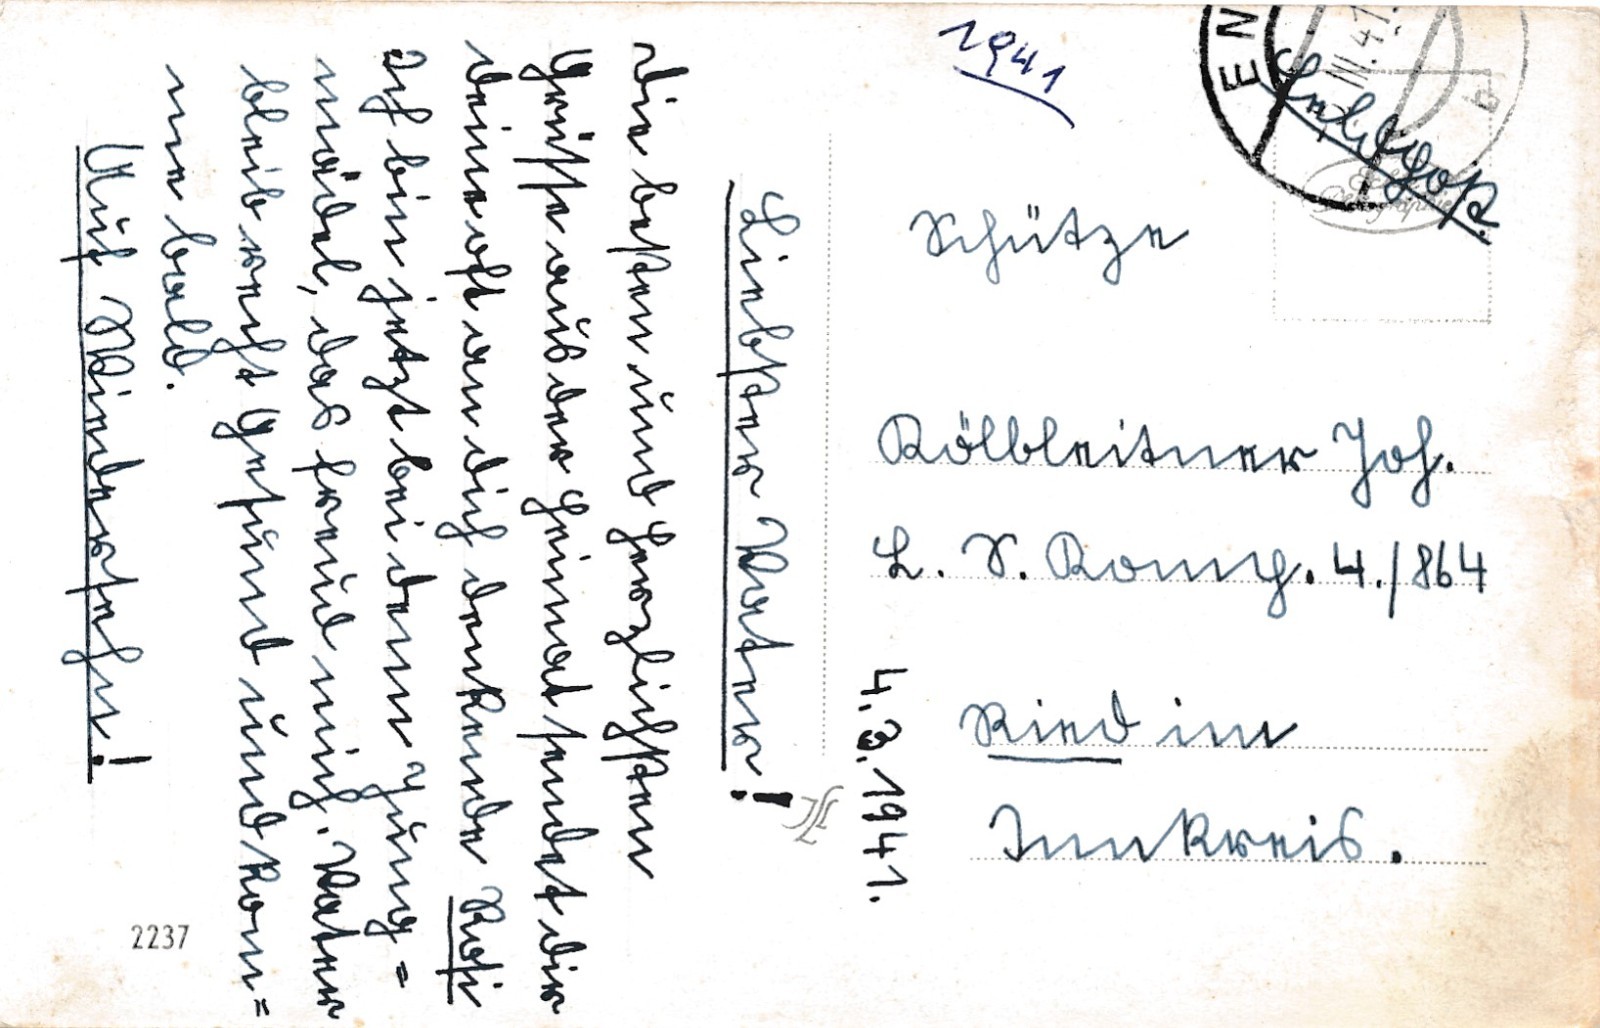 1941
EN
III.41
b
Feldpost.
Schütze
Kölbleitner Joh.
L. S. Komp. 4./864
Ried im
Innkreis.
4.3.1941.
Liebster Vater!
Die besten und herzlichsten
Grüße aus der Heimat sendet dir
deine oft an dich denkende Rosi
Ich bin jetzt bei dem Jung=
mädel, das freud mich. Vater
bleib recht gesund und kom=
me bald.
Auf Wiedersehn!
2237